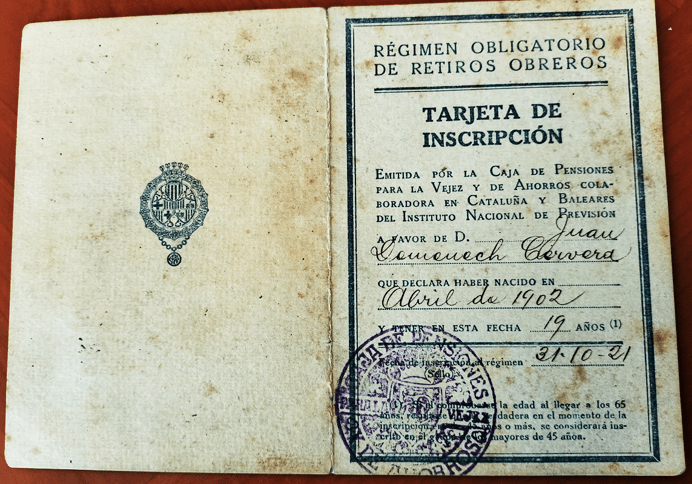 RÉGIMEN OBLIGATORIO
DE RETIROS OBREROS
TARJETA DE
INSCRIPCIÓN
EMITIDA POR LA CAJA DE PENSIONES
PARA LA VEJEZ Y DE AHORROS COLA-
BORADORA EN CATALUÑA Y BALEARES
DEL INSTITUTO NACIONAL DE PREVISIÓN
A FAVOR DE D. Juan
Domenech Cervera
QUE DECLARA HABER NACIDO EN
Abril de 1902
Y TENER EN ESTA FECHA 19 AÑOS (1)
Fecha de inscripción al régimen 31-10-21
(Sello)
(1) Si al comprobarse la edad al llegar a los 65
años, la verdadera en el momento de la
inscripción años o más, se considerará ins-
crito en el grupo de los mayores de 45 años.
CAJA DE PENSIONES
VEJEZ
DE AHORROS